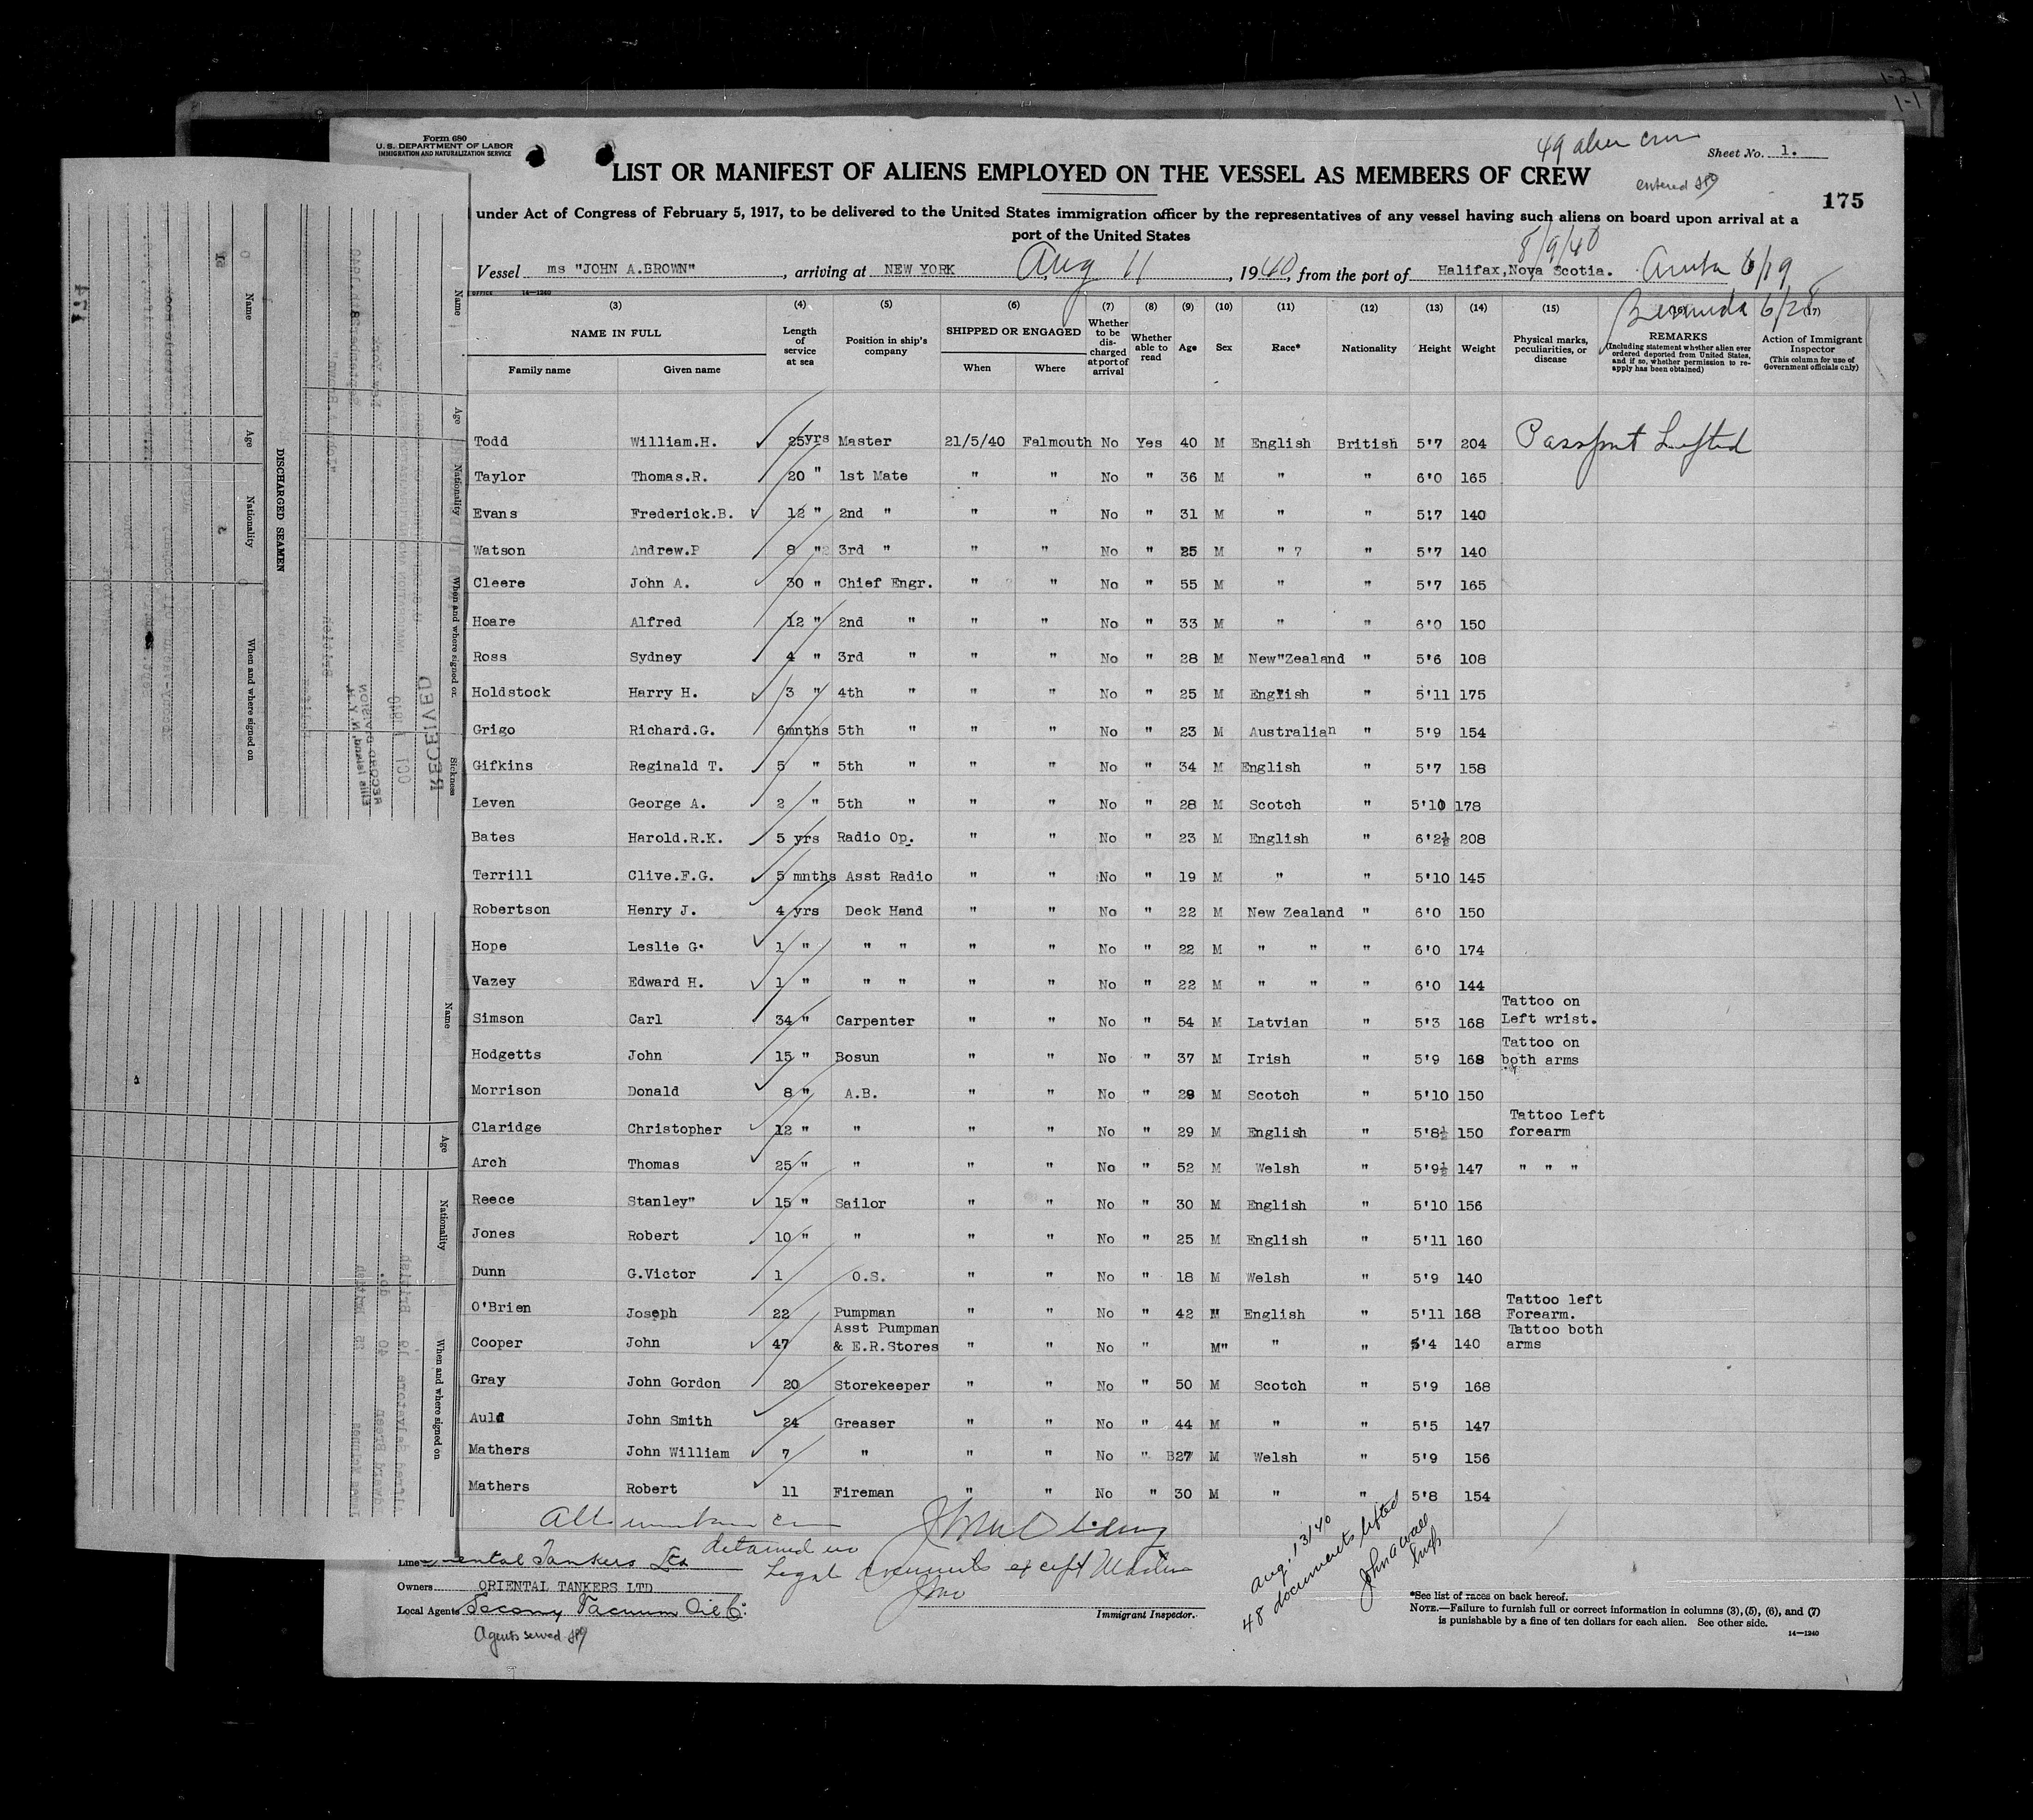 1-2
1-1
Form 680
U. S. DEPARTMENT OF LABOR
IMMIGRATION AND NATURALIZATION SERVICE
49 alien crew
Sheet No. 1.
LIST OR MANIFEST OF ALIENS EMPLOYED ON THE VESSEL AS MEMBERS OF CREW
entered
175
under Act of Congress of February 5, 1917, to be delivered to the United States immigration officer by the representatives of any vessel having such aliens on board upon arrival at a
port of the United States
8/9/40
Vessel ms "JOHN A.BROWN", arriving at NEW YORK Aug 11, 1940, from the port of Halifax,Nova Scotia. Aruba 6/19
Bermuda 6/28
(3) (4) (5) (6) (7) (8) (9) (10) (11) (12) (13) (14) (15) (17)
NAME IN FULL Length of service at sea Position in ship's company SHIPPED OR ENGAGED Whether to be discharged at port of arrival Whether able to read Age Sex Race* Nationality Height Weight Physical marks, peculiarities, or disease REMARKS (Including statement whether alien ever ordered deported from United States, and if so, whether permission to reapply has been obtained) Action of Immigrant Inspector (This column for use of Government officials only)
Family name Given name When Where
Todd William.H. 25yrs Master 21/5/40 Falmouth No Yes 40 M English British 5'7 204 Passport Lifted
Taylor Thomas.R. 20 " 1st Mate " " No " 36 M " " 6'0 165
Evans Frederick.B. 12 " 2nd " " " No " 31 M " " 5'7 140
Watson Andrew.P 8 " 3rd " " " No " 25 M " 7 " 5'7 140
Cleere John A. 30 " Chief Engr. " " No " 55 M " " 5'7 165
Hoare Alfred 12 " 2nd " " " No " 33 M " " 6'0 150
Ross Sydney 4 " 3rd " " " No " 28 M New"Zealand " 5'6 108
Holdstock Harry H. 3 " 4th " " " No " 25 M English " 5'11 175
Grigo Richard.G. 6mnths 5th " " " No " 23 M Australian " 5'9 154
Gifkins Reginald T. 5 " 5th " " " No " 34 M English " 5'7 158
Leven George A. 2 " 5th " " " No " 28 M Scotch " 5'10 178
Bates Harold.R.K. 5 yrs Radio Op. " " No " 23 M English " 6'2½ 208
Terrill Clive.F.G. 5 mnths Asst Radio " " No " 19 M " " 5'10 145
Robertson Henry J. 4 yrs Deck Hand " " No " 22 M New Zealand " 6'0 150
Hope Leslie G. 1 " " " " " No " 22 M " " " 6'0 174
Vazey Edward H. 1 " " " " " No " 22 M " " " 6'0 144
Simson Carl 34 " Carpenter " " No " 54 M Latvian " 5'3 168 Tattoo on Left wrist.
Hodgetts John 15 " Bosun " " No " 37 M Irish " 5'9 168 Tattoo on both arms
Morrison Donald 8 " A.B. " " No " 29 M Scotch " 5'10 150
Claridge Christopher 12 " " " " No " 29 M English " 5'8½ 150 Tattoo Left forearm
Arch Thomas 25 " " " " No " 52 M Welsh " 5'9½ 147 " " "
Reece Stanley" 15 " Sailor " " No " 30 M English " 5'10 156
Jones Robert 10 " " " " No " 25 M English " 5'11 160
Dunn G.Victor 1 O.S. " " No " 18 M Welsh " 5'9 140
O'Brien Joseph 22 Pumpman " " No " 42 M English " 5'11 168 Tattoo left Forearm.
Cooper John 47 Asst Pumpman & E.R.Stores " " No " M" " " 5'4 140 Tattoo both arms
Gray John Gordon 20 Storekeeper " " No " 50 M Scotch " 5'9 168
Auld John Smith 24 Greaser " " No " 44 M " " 5'5 147
Mathers John William 7 " " " No " 27 M Welsh " 5'9 156
Mathers Robert 11 Fireman " " No " 30 M " " 5'8 154
All
detained no
Legal documents except Master
Line Oriental Tankers Ltd
Owners ORIENTAL TANKERS LTD
Local Agents Socony Vacuum Oil Co.
Agents served
Immigrant Inspector.
Aug. 13/40
48 documents lifted
John A Wall
Insp
*See list of races on back hereof.
NOTE.—Failure to furnish full or correct information in columns (3), (5), (6), and (7)
is punishable by a fine of ten dollars for each alien. See other side.
14—1240
174
DISCHARGED SEAMEN
Name Age Nationality When and where signed on
Name Age Nationality When and where signed on Sickness
RECEIVED
OCT 1 1940
RECORD DIVISION
Ellis Island, N. Y. H.
Name Age Nationality When and where signed on